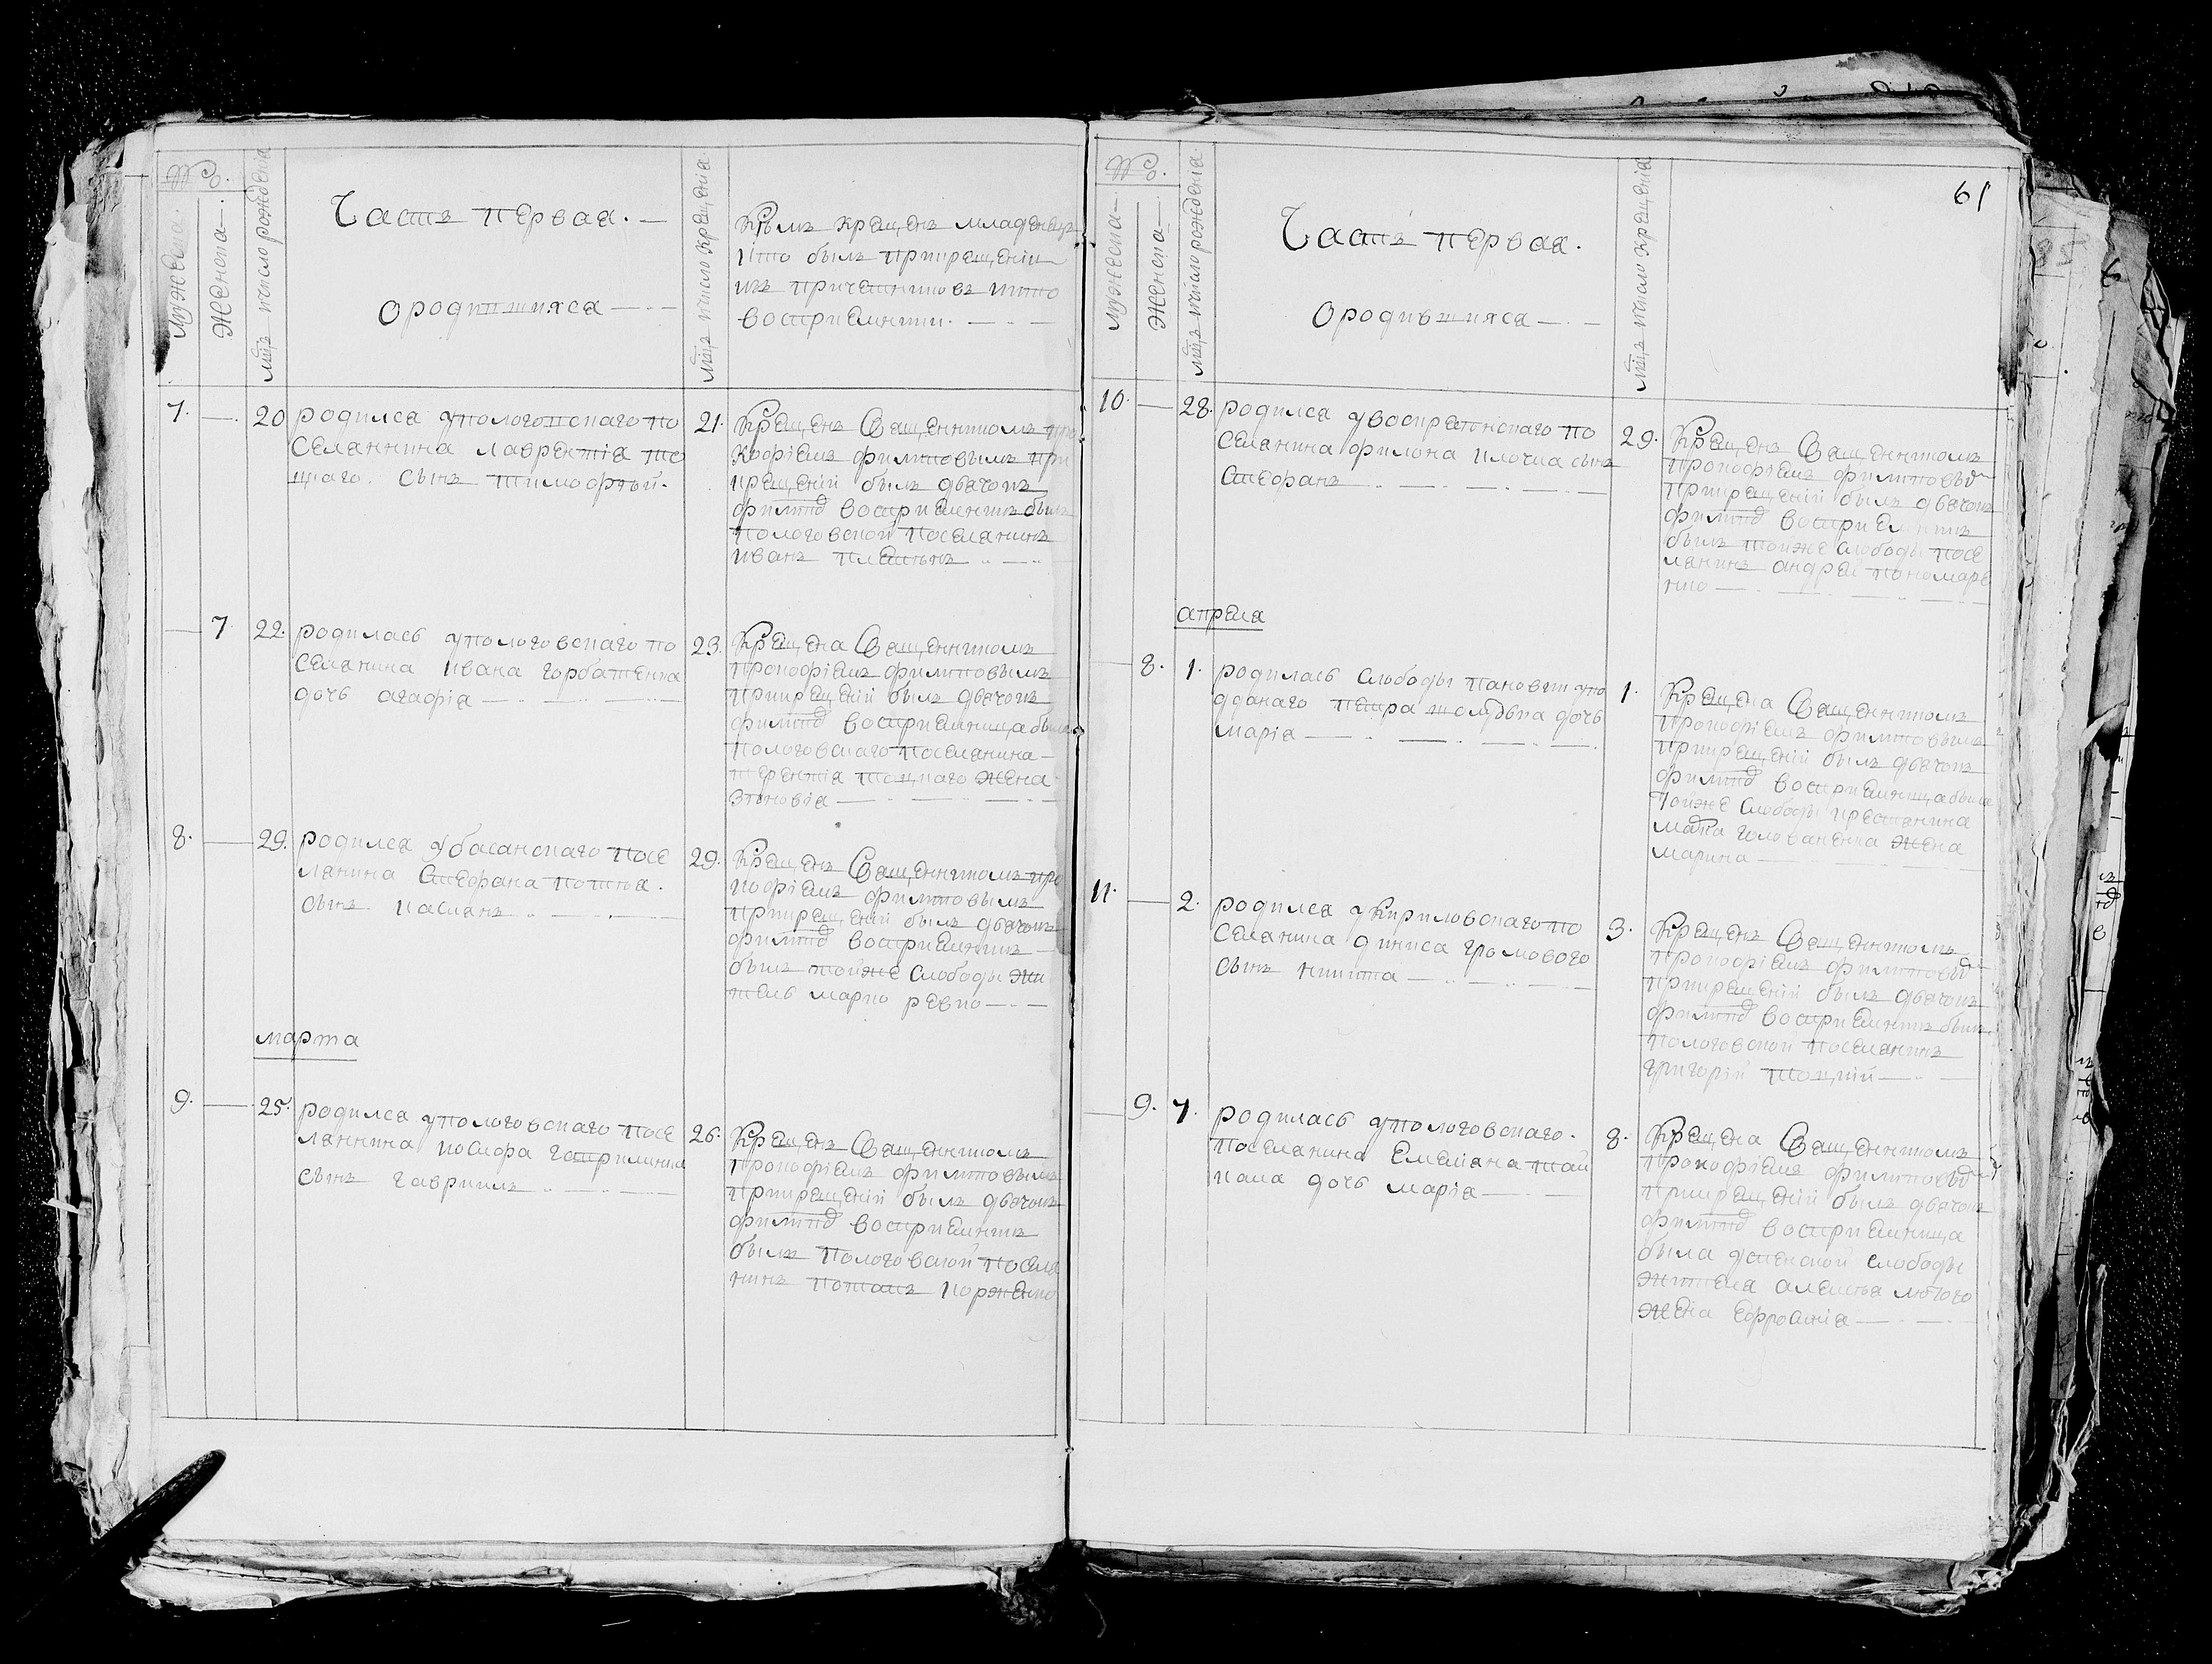 №.
мужеска.
женска.
мц̃ъ и число рожденїа
Часть первая.
ородившихся
мц̃ъ и число крещенїа
Кѣмъ крещенъ младенецъ
икто былъ прикрещенїи
изъ причетниковъ икто
воспрїемники.
7. — 20
родился упологовскаго по
селянина лаврентїа то
цкаго. сынъ тимофтей.
21.
Крещенъ Священникомъ про
кофїемъ филиповымъ при
крещенїй былъ дьячокъ
филипъ воспрїемникъ былъ
пологовской поселянинъ
иванъ
— 7 22.
родилась упологовскаго по
селянина ивана горбатенка
дочь агафїа
23.
Крещена Священникомъ
прокофїемъ филиповымъ
прикрещенїй былъ дьячокъ
филипъ воспрїемница была
пологовскаго поселянина
терентїа тоцкаго жена
зѣновїа
8. — 29.
родился убасанскаго посе
лянина Стефана
сынъ касиянъ
29.
Крещенъ Священникомъ про
кофїемъ филиповымъ
прикрещенїй былъ дьячокъ
филипъ воспрїемникъ
былъ тойже слободы жи
тель марко ревко
марта
9. — 25.
родился упологовскаго посе
ляннина иосифа гаврилика
сынъ гаврїилъ
26.
Крещенъ Священникомъ
прокофїемъ филиповымъ
прикрещенїй былъ дьячокъ
филипъ воспрїемникъ
былъ пологовской поселя
нинъ потапъ коржемко
61
№.
мужеска
женска
мц̃ъ и число рожденїа
Часть первая.
ородившихся
мц̃ъ и число крещенїа
10. — 28.
родился увоскрѣсенскаго по
селянина филона клочка сынъ
Стефанъ
29.
Крещенъ Священникомъ
прокофїемъ филиповы
прикрещенїй былъ дьячокъ
филипъ воспрїемникъ
былъ тойже слободы посе
лянинъ андрей пономаре
нко
апреля
— 8. 1.
родилась слободы пановки упо
дданаго петра дочь
марїа
1.
Крещена Священникомъ
прокофїемъ филиповымъ
прикрещенїй былъ дьячокъ
филипъ воспрїемница была
тойже слободы крестянина
голованенка жена
марина
11. — 2.
родился укириловскаго по
селянина диниса громового
сынъ никита
3.
Крещенъ Священникомъ
прокофїемъ филиповы
прикрещенїй былъ дьячокъ
филипъ воспрїемникъ былъ
пологовской поселянинъ
григорїй тоцкїй
— 9. 7.
родилась упологовскаго.
поселянина Емелiана тай
кала дочь марїа
8.
Крещена Священникомъ
прокофїемъ филиповы
прикрещенїй былъ дьячокъ
филипъ воспрїемница
была успенской слободы
жителя алексѣя лютого
жена Ефросинїа